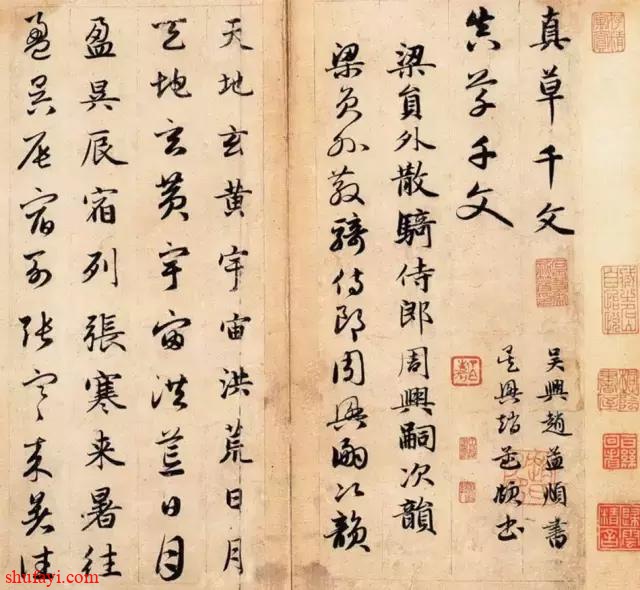 真草千文
真草千文
吳興趙孟頫書
吳興趙孟頫書
梁員外散騎侍郎周興嗣次韻
梁員外散騎侍郎周興嗣次韻
天地玄黃宇宙洪荒日月
天地玄黃宇宙洪荒日月
盈昃辰宿列張寒来暑往
盈昃辰宿列張寒来暑往
shufayi.com